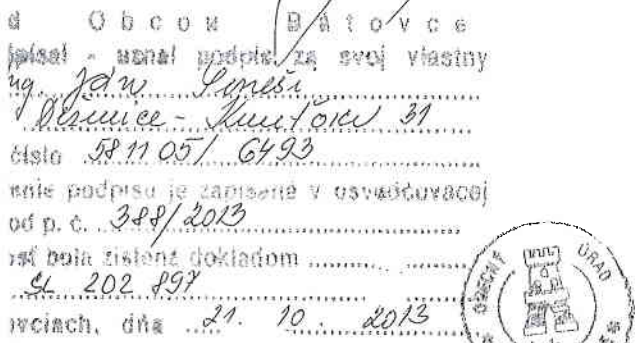 d Obcou Bátovce
dpísal - uznal podpis za svoj vlastný
ng. Ján
31
číslo 58 11 05/ 6493
enie podpisu je zapísané v osvedčovacej
od p. č. 388/2013
osť bola zistená dokladom
SL 202 897
ovciach, dňa 21. 10. 2013
OBECNÝ ÚRAD